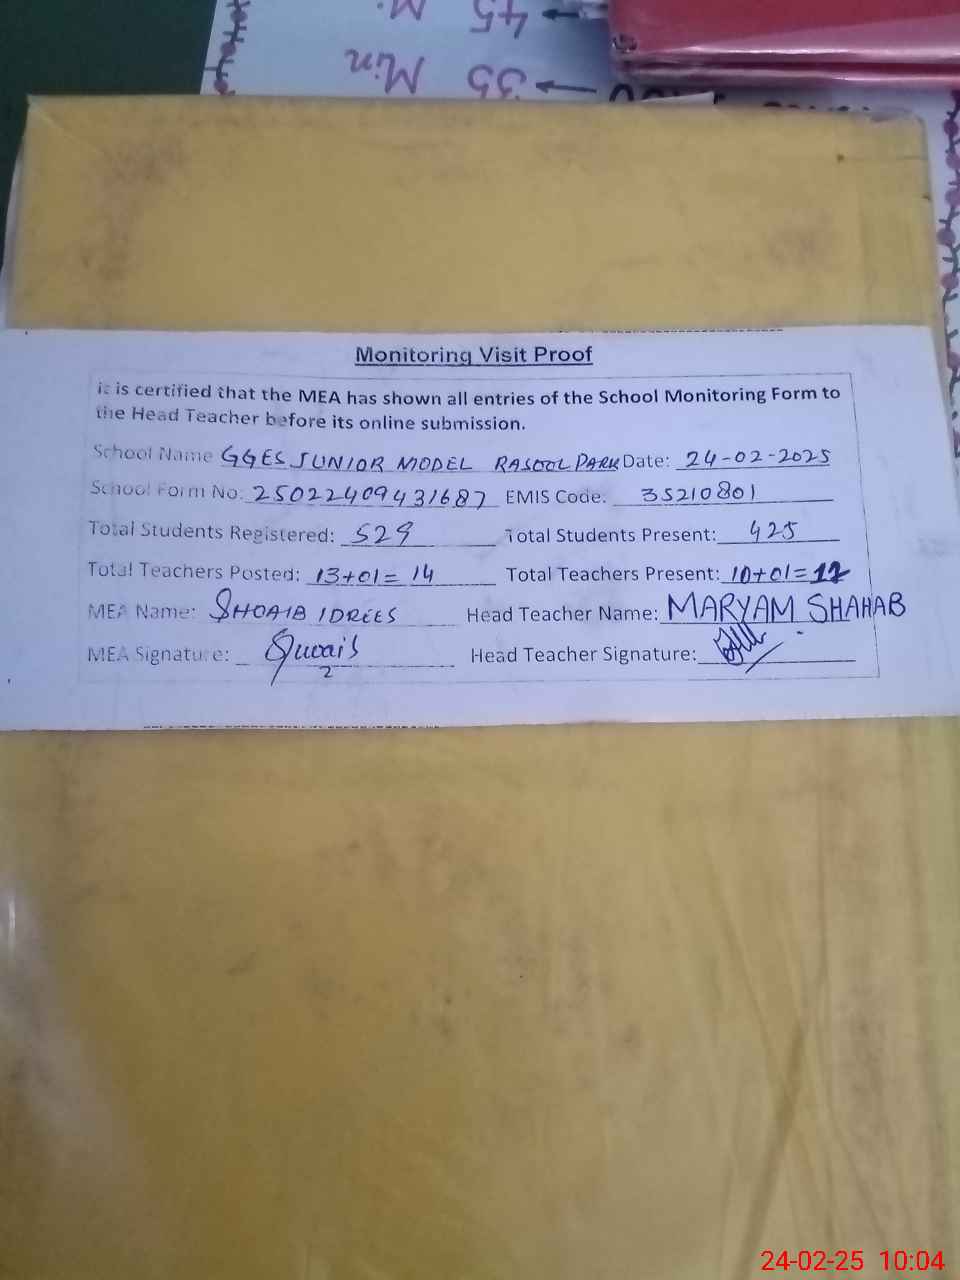 45 Mi
35 Min
Monitoring Visit Proof
it is certified that the MEA has shown all entries of the School Monitoring Form to
the Head Teacher before its online submission.
School Name GGES JUNIOR MODEL RASOOL PARK Date: 24-02-2025
School Form No: 25022409431687 EMIS Code: 35210801
Total Students Registered: 529 Total Students Present: 425
Total Teachers Posted: 13+01= 14 Total Teachers Present: 10+01=
MEA Name: SHOAIB IDREES Head Teacher Name: MARYAM SHAHAB
MEA Signature: Head Teacher Signature:
24-02-25 10:04